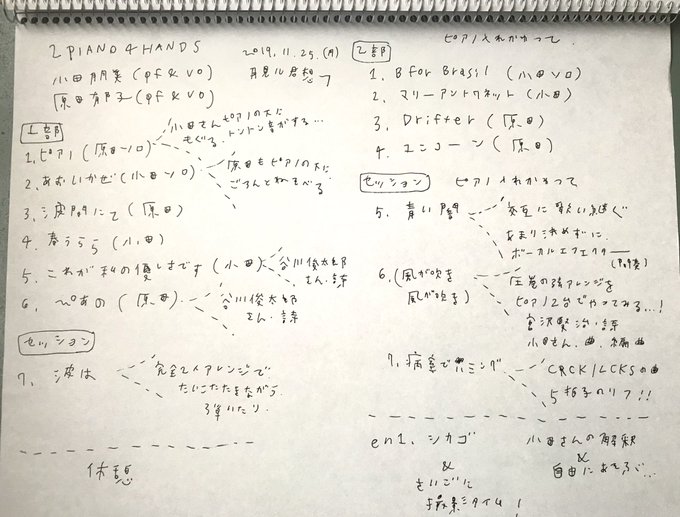 2 PIANO 4 HANDS
2019.11.25.(月)
月見ル君想フ
小田朋美(pf & vo)
原田郁子(pf & vo)
1部
1. ピアノ(原田ソロ)
小田さんピアノの下に
もぐる.
トントン音がする…
2. あおいかぜ(小田ソロ)
原田もピアノの下に
ごろんとねそべる
3. 波間にて(原田)
4. 春うらら(小田)
5. これが私の優しさです(小田)
谷川俊太郎
さん・詩
6. ぺあの(原田)
谷川俊太郎
さん・詩
セッション
7. 波は
完全2人アレンジで
たいこたたきながら
弾いたり.
休憩
ピアノ入れかわって.
2部
1. B for Brasil(小田ソロ)
2. マリーアントワネット(小田)
3. Drifter(原田)
4. ユニコーン(原田)
セッション
ピアノ入れかわって
5. 青い闇
交互に歌い継ぐ
あまり決めずに
ボーカルエフェクター
6. (風が吹き
風が吹き)
圧巻の弦アレンジを
ピアノ2台でやってみる…!
宮沢賢治・詩
小田さん・曲・編曲
7. 病室でハミング
CRCK/LCKSの曲
5拍子のリフ!!
en1. シカゴ
小田さんの解釈
&
自由にあそぶ…
&
さいごに
撮影タイム!